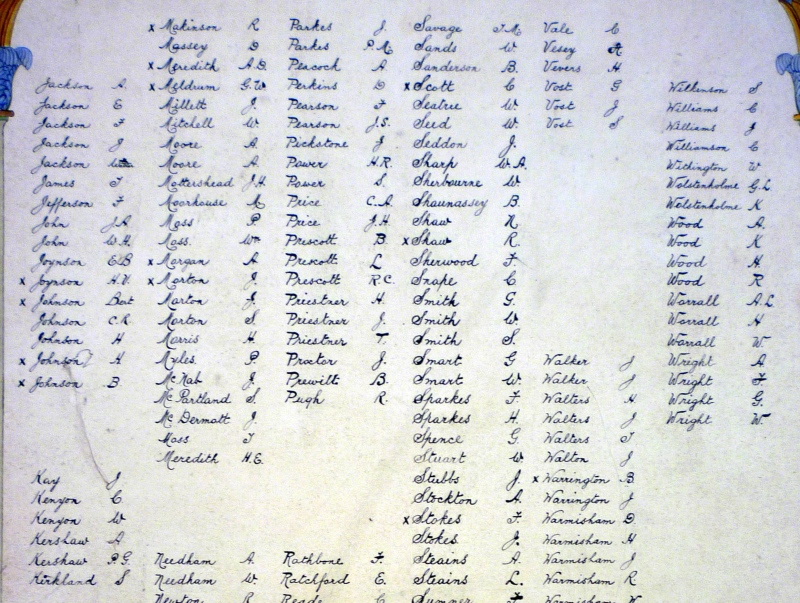 x Makinson R Parkes J. Savage J.M. Vale C
Massey D Parkes P.M. Sands W Vesey A
x Meredith A.D. Peacock A Sanderson B. Vevers H
Jackson A. x Meldrum G.W Perkins D x Scott C Vost G Wilkinson S
Jackson E Millett J. Pearson F Seatree W Vost J Williams C
Jackson F Mitchell W. Pearson J.S. Seed W. Vost S Williams J
Jackson J Moore A Pickstone J Seddon J. Williamson C
Jackson Moore A. Power H.R. Sharp W.A. Withington W
James T Mottershead J.H. Power S. Sherbourne W. Wolstenholme G.L.
Jefferson F Moorhouse A Price C.A. Shaunassey B. Wolstenholme K
John J.A Moss P. Price J.H. Shaw N Wood A.
John W.H. Moss. Wm Prescott B. x Shaw R. Wood K
Joynson E.B x Morgan A Prescott L Sherwood F. Wood H
x Joynson H.V. x Morton J. Prescott R.C. Snape C. Wood R
x Johnson Bert Morton J. Priestner H. Smith G. Worrall A.L.
Johnson C.R. Morton S Priestner J. Smith W. Worrall H
Johnson H Morris H. Priestner T. Smith S. Worrall W.
x Johnson H Myles P. Proctor J. Smart G Walker J Wright A
x Johnson B Mc Nab J Prewitt B. Smart W. Walker J Wright F
Mc Partland S. Pugh R. Sparkes F Walters H Wright G.
Mc Dermott J. Sparkes H. Walters J Wright W.
Moss T Spence G. Walters T
Meredith H.E. Stuart W Walton J
Kay J Stubbs J. x Warrington B
Kenyon C. Stockton A. Warrington J
Kenyon W x Stokes F. Warmisham D.
Kershaw A Stokes J. Warmisham H
Kershaw P.G. Needham A. Rathbone F. Steains A Warmisham J
Kirkland S Needham W. Ratchford E. Steains L. Warmisham R
Newton R Reade C Sumner F Warmisham W